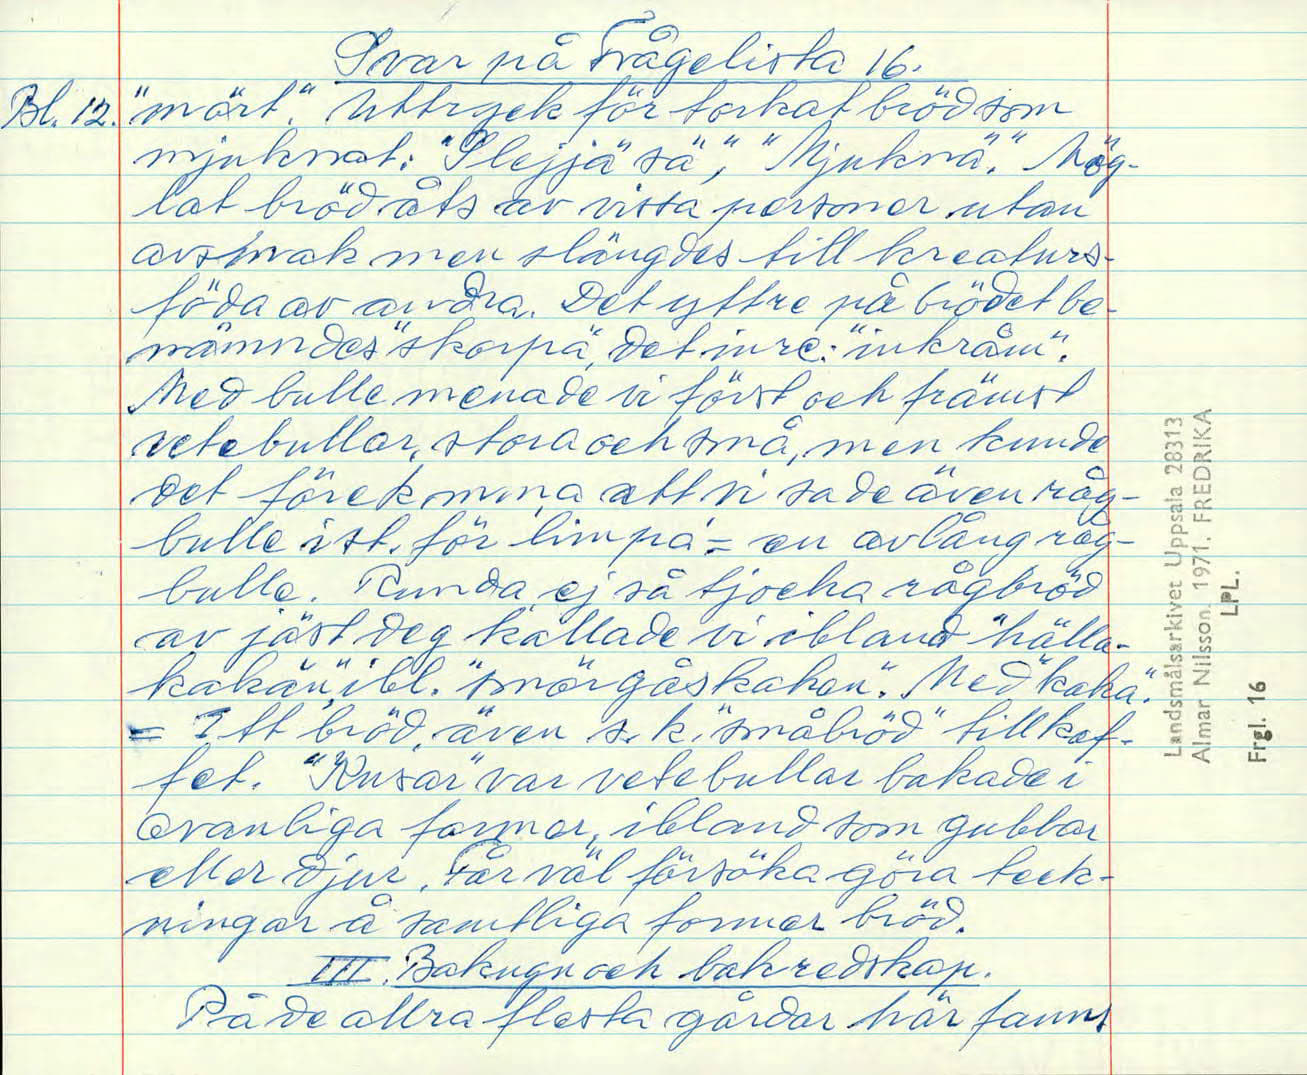 Svar på Frågelista 16.
Bl. 12. "mört". Uttryck för torkat bröd som
mjuknat: "Slejjä sä", "Mjuknä". Mög-
lat bröd åts av vissa personer utan
avsmak men slängdes till kreaturs-
föda av andra. Det yttre på brödet be-
nämndes "skorpa", det inre: "inkråm".
Med bulle menade vi först och främst
vetebullar, stora och små, men kunde
det förekomma att vi sade även råg-
bulle ist. för limpa = en avlång råg-
bulle. Runda ej så tjocka rågbröd
av jäst deg kallade vi ibland "hälla-
kakan", ibl. "smörgåskakan". Med "kaka".
= Ett bröd, även s.k. "småbröd" till kaf-
fet. "Kusar" var vetebullar bakade i
ovanliga former, ibland som gubbar
eller djur. Får väl försöka göra teck-
ningar å samtliga former bröd.
III. Bakugn och bakredskap.
På de allra flesta gårdar här fanns
Landsmålsarkivet Uppsala 28313
Almar Nilsson. 1971. FREDRIKA
LPL.
Frgl. 16